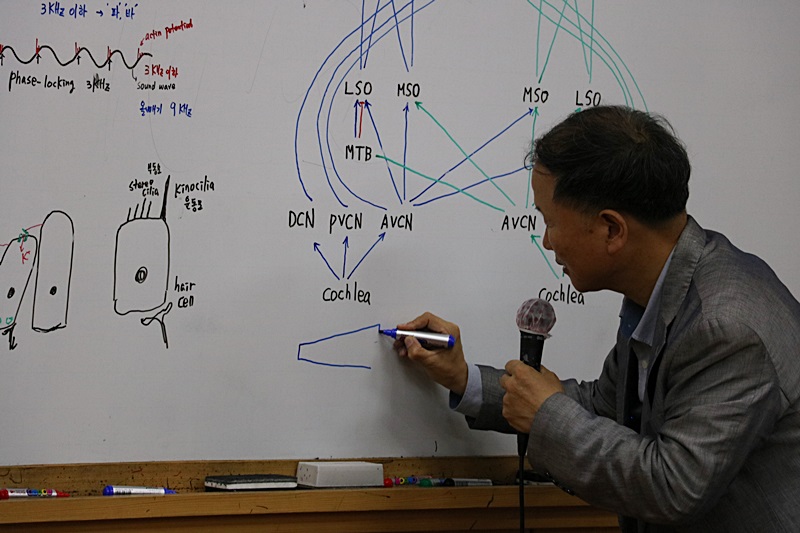 3 KHz 이하 → '파', '바'
actin potential
3 KHz 이하
phase-locking 3KHz
sound wave
올빼미 9 KHz
LSO MSO
MSO LSO
MTB
부동모
stereo
cilia
kinocilia
운동모
DCN PVCN AVCN
AVCN
K⁺
hair
cell
Cochlea
Cochlea